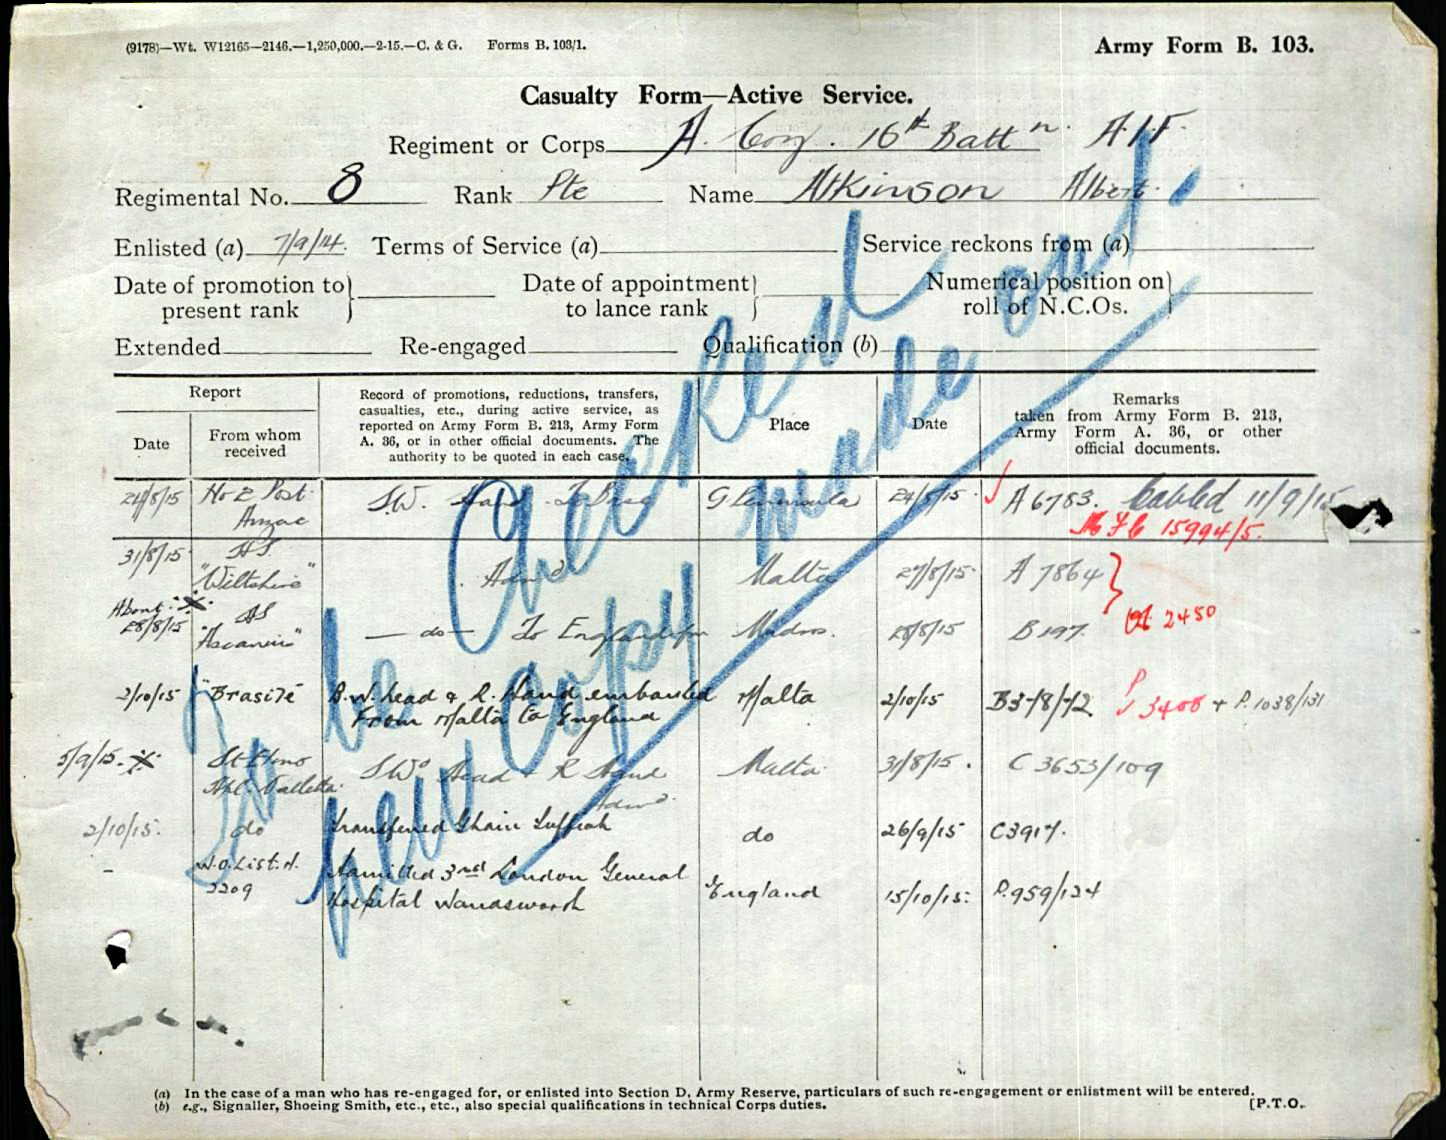 (9178)—Wt. W12165—2146.—1,250,000.—2-15.—C. & G. Forms B. 103/1.
Army Form B. 103.
Casualty Form—Active Service.
Regiment or Corps A. Coy. 16th Battn. A.I.F.
Regimental No. 8 Rank Pte Name Atkinson Albert
Enlisted (a) 7/9/14. Terms of Service (a) Service reckons from (a)
Date of promotion to present rank } Date of appointment to lance rank } Numerical position on roll of N.C.Os. }
Extended Re-engaged Qualification (b)
Report
Date
From whom received
Record of promotions, reductions, transfers,
casualties, etc., during active service, as
reported on Army Form B. 213, Army Form
A. 36, or in other official documents. The
authority to be quoted in each case.
Place
Date
Remarks
taken from Army Form B. 213,
Army Form A. 36, or other
official documents.
24/8/15 No 2 Post. Anzac S.W. Hand. 24/8/15 A 6783. Cabled 11/9/15
15994/5.
31/8/15 HS "Wiltshire" Adm'd Malta 27/8/15 A 7864
About 28/8/15 HS — do — To England 28/8/15 B 197. 2450
2/10/15 "Brasile" B.W. head & R. Hand embarked from Malta to England Malta 2/10/15 3408 + P. 1038/131
5/9/15. St Elmo Hpl. Valletta S.W. Head & R Hand Admd. Malta 31/8/15. C 3653/109
2/10/15. do Transferred Ghain Tuffieh do 26/9/15 C3917.
W.O. List. H. 2209 Admitted 3rd London General Hospital Wandsworth England 15/10/15. P. 959/124
To be Checked &
new Copy made out.
(a) In the case of a man who has re-engaged for, or enlisted into Section D, Army Reserve, particulars of such re-engagement or enlistment will be entered.
(b) e.g., Signaller, Shoeing Smith, etc., etc., also special qualifications in technical Corps duties.
[P.T.O.